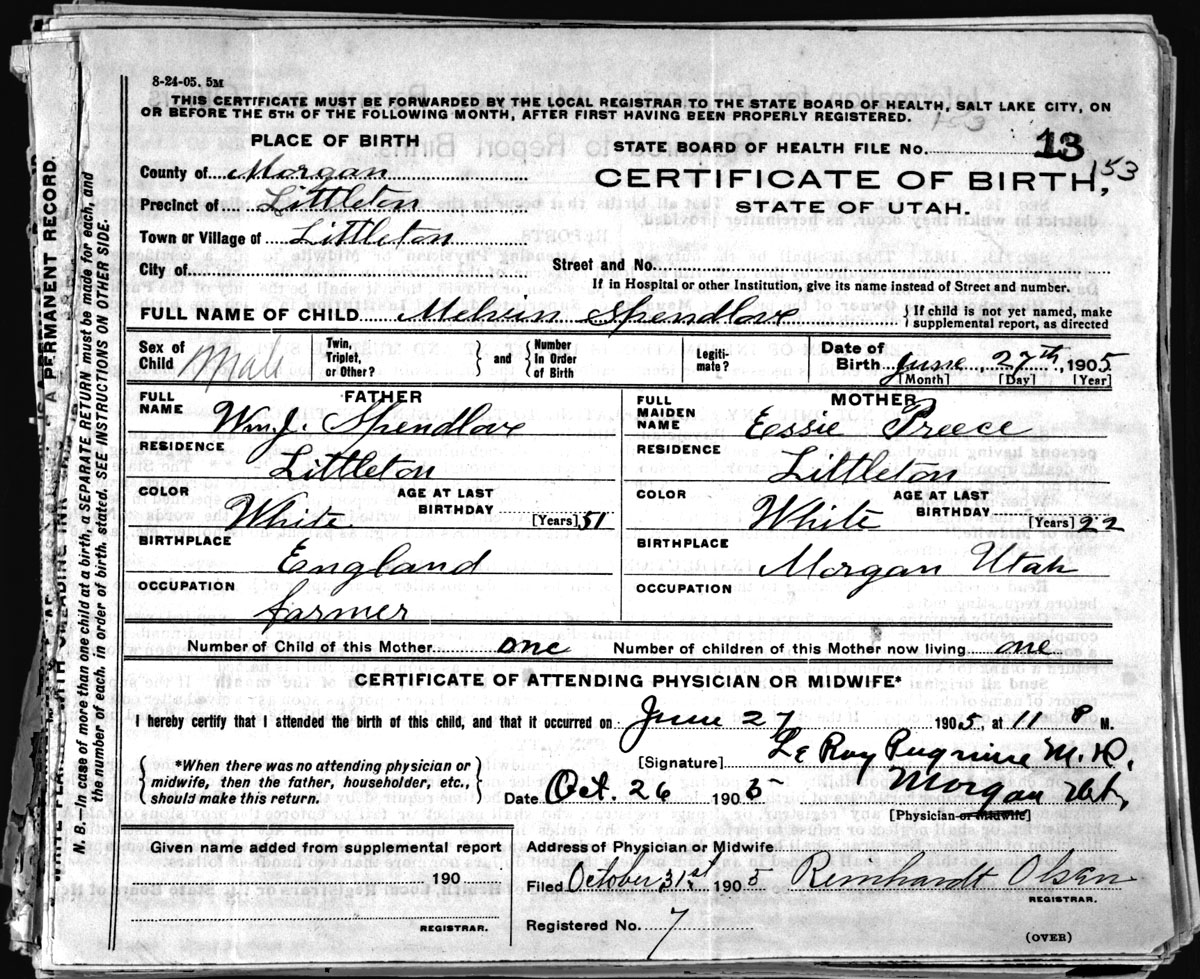 8-24-05. 5M
THIS CERTIFICATE MUST BE FORWARDED BY THE LOCAL REGISTRAR TO THE STATE BOARD OF HEALTH, SALT LAKE CITY, ON
OR BEFORE THE 5TH OF THE FOLLOWING MONTH, AFTER FIRST HAVING BEEN PROPERLY REGISTERED.
153
PLACE OF BIRTH
STATE BOARD OF HEALTH FILE NO. 13
153
County of Morgan
CERTIFICATE OF BIRTH,
Precinct of Littleton
STATE OF UTAH.
Town or Village of Littleton
City of
Street and No.
If in Hospital or other Institution, give its name instead of Street and number.
FULL NAME OF CHILD Melvin Spendlove
{If child is not yet named, make
supplemental report, as directed
Sex of Child Male
Twin, Triplet, or Other? } and { Number In Order of Birth
Legitimate?
Date of Birth June 27th, 1905
[Month] [Day] [Year]
FATHER
FULL NAME Wm. J. Spendlove
RESIDENCE Littleton
COLOR White
AGE AT LAST BIRTHDAY 51 [Years]
BIRTHPLACE England
OCCUPATION farmer
MOTHER
FULL MAIDEN NAME Essie Preece
RESIDENCE Littleton
COLOR White
AGE AT LAST BIRTHDAY 22 [Years]
BIRTHPLACE Morgan Utah
OCCUPATION
Number of Child of this Mother one Number of children of this Mother now living one
CERTIFICATE OF ATTENDING PHYSICIAN OR MIDWIFE*
I hereby certify that I attended the birth of this child, and that it occurred on June 27 1905, at 11 P M.
*When there was no attending physician or
midwife, then the father, householder, etc.,
should make this return.
[Signature] Le Roy Pugmire M.D.
Date Oct. 26 1905 Morgan Ut,
[Physician or midwife]
Given name added from supplemental report
190
REGISTRAR.
Address of Physician or Midwife
Filed October 31st 1905 Reinhardt Olsen
REGISTRAR.
Registered No. 7
(OVER)
N. B.—In case of more than one child at a birth, a SEPARATE RETURN must be made for each, and
the number of each, in order of birth, stated. SEE INSTRUCTIONS ON OTHER SIDE.
A PERMANENT RECORD.